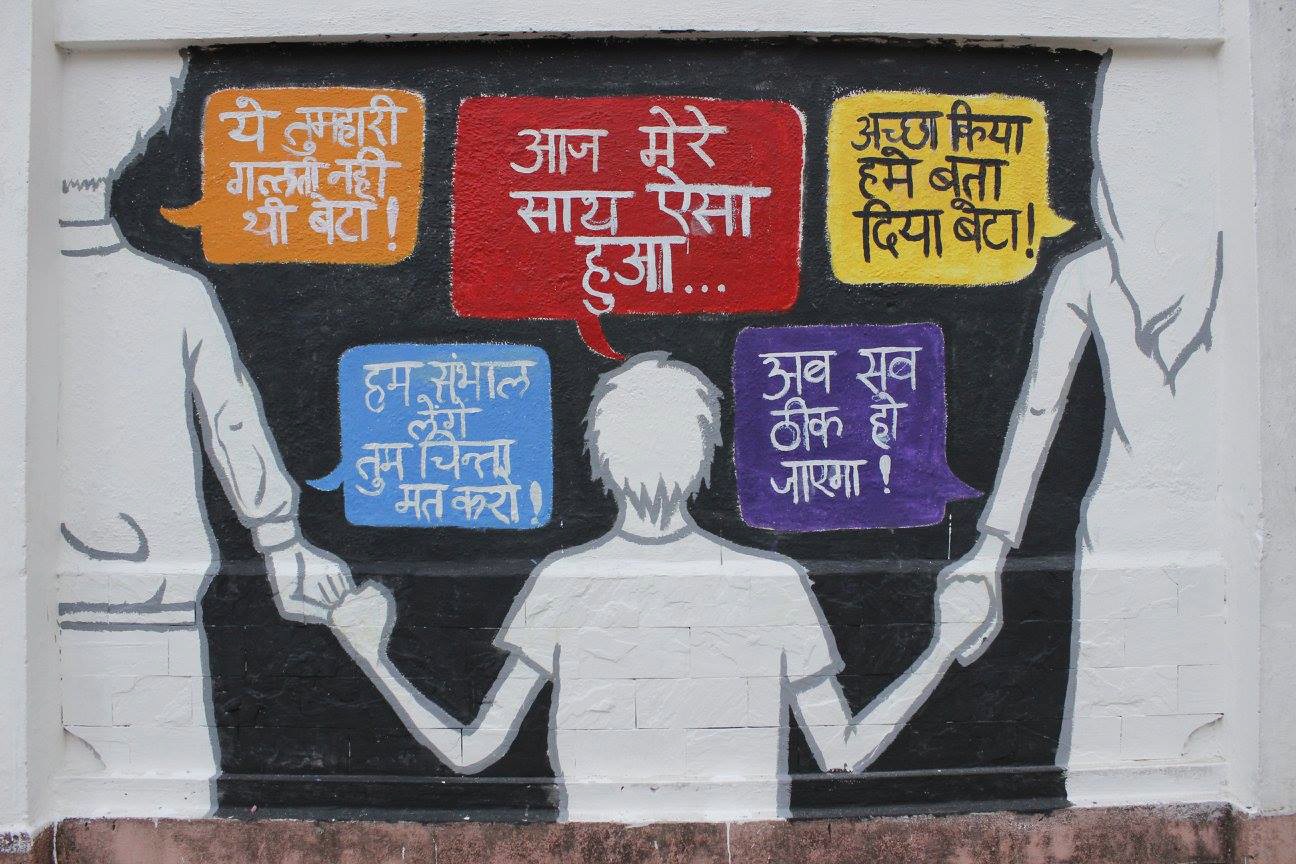 ये तुम्हारी
गलती नही
थी बेटा !
आज मेरे
साथ ऐसा
हुआ...
अच्छा किया
हमे बता
दिया बेटा!
हम संभाल
लेंगे
तुम चिन्ता
मत करो !
अब सब
ठीक हो
जाएगा !